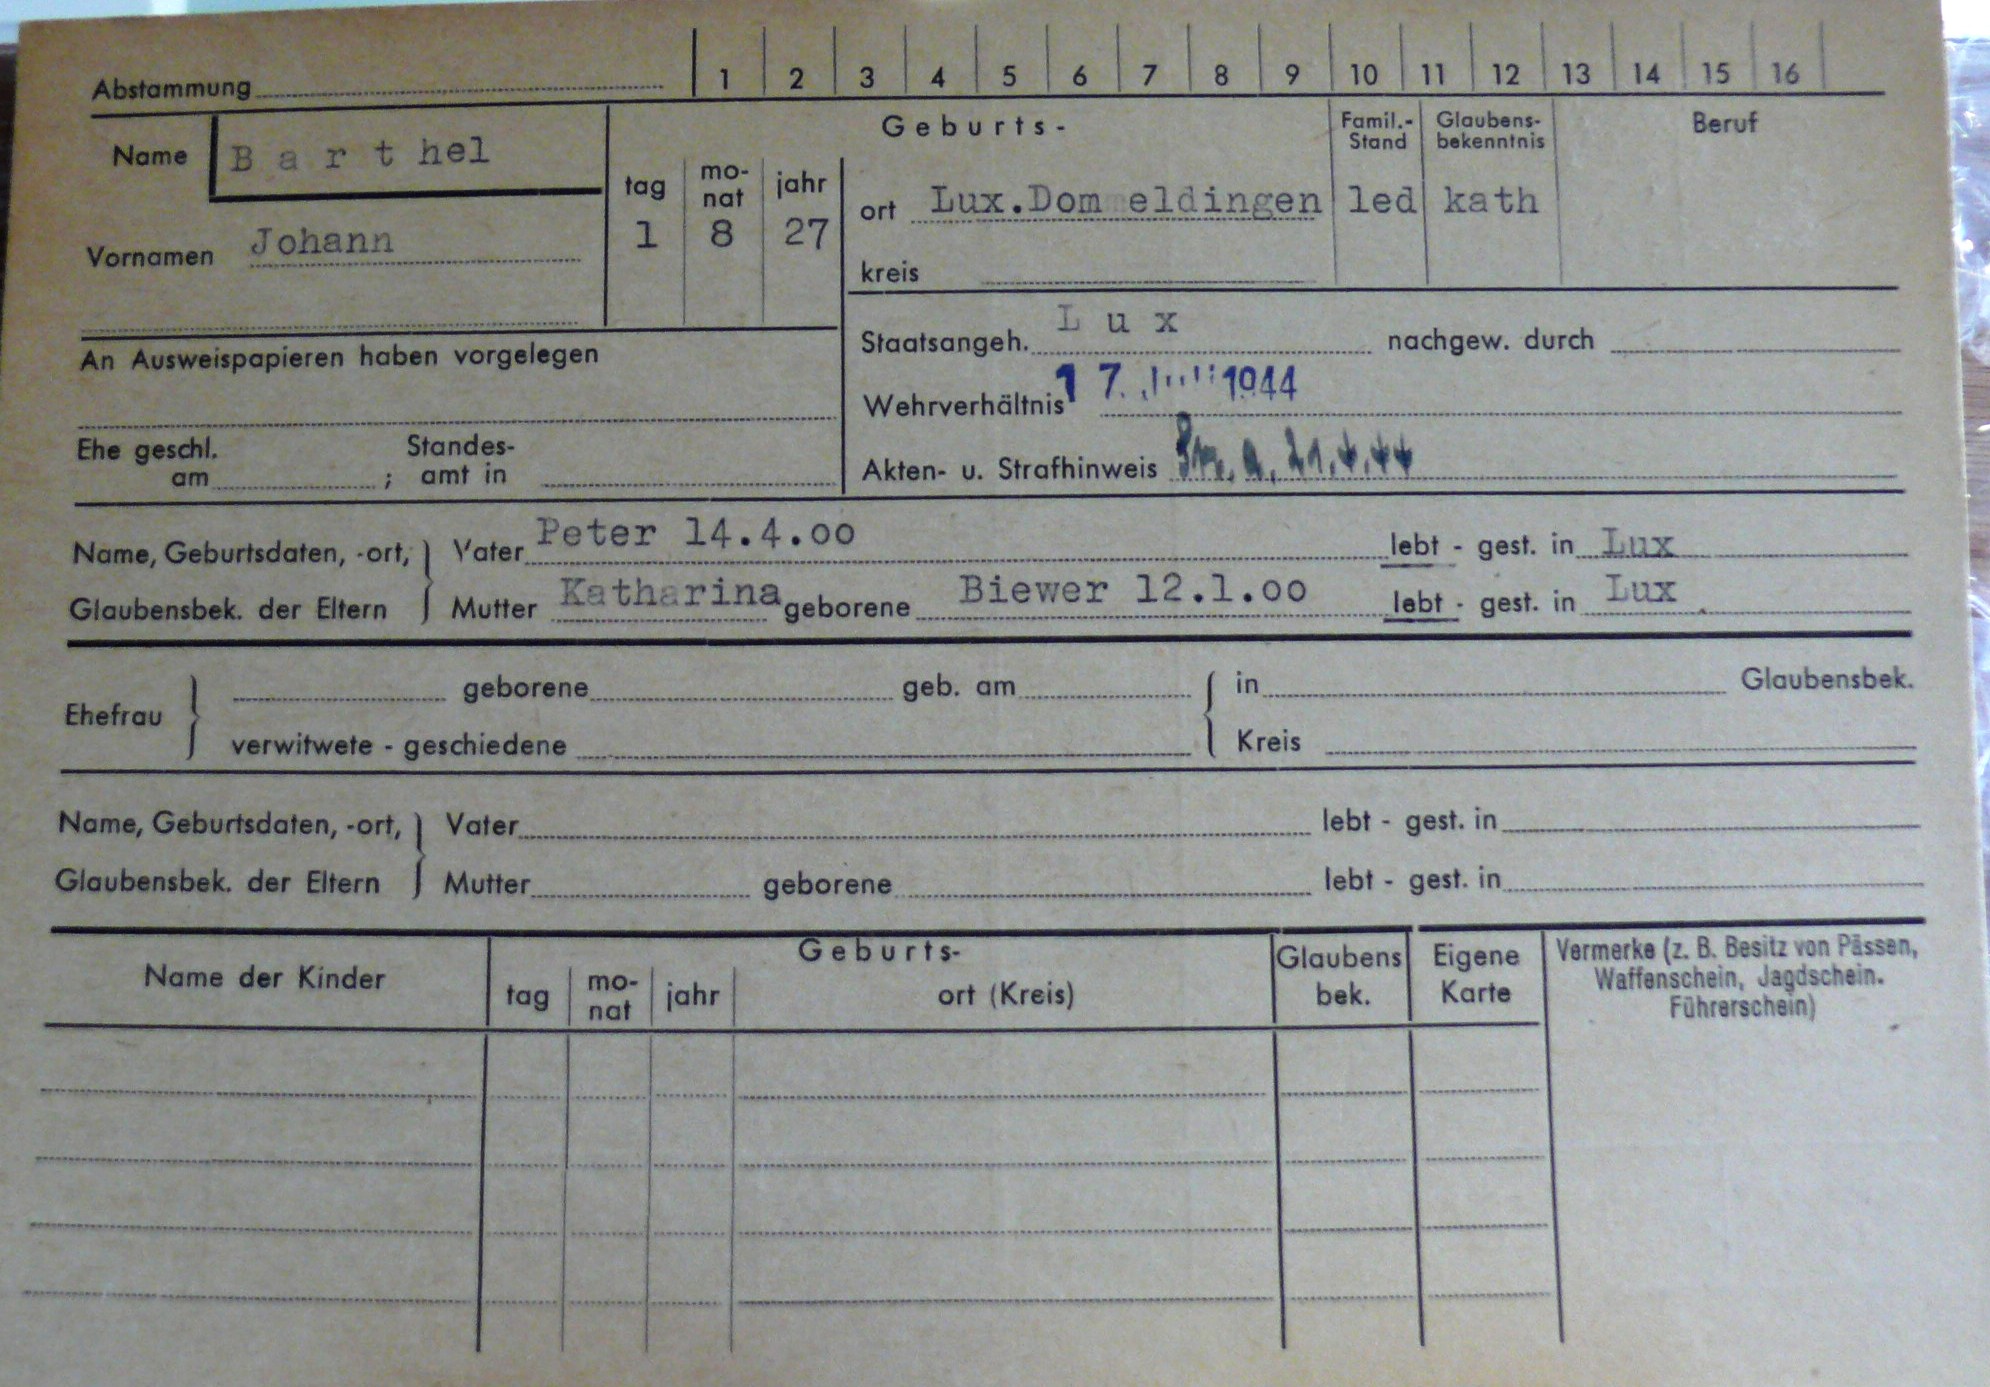 Abstammung 1 2 3 4 5 6 7 8 9 10 11 12 13 14 15 16
Name Barthel
Vornamen Johann
Geburts-
tag mo-nat jahr
1 8 27
ort Lux.Dommeldingen
kreis
Famil.-Stand
led
Glaubens-bekenntnis
kath
Beruf
An Ausweispapieren haben vorgelegen
Ehe geschl. am ; Standes-amt in
Staatsangeh. Lux nachgew. durch
Wehrverhältnis 17. Juli 1944
Akten- u. Strafhinweis
Name, Geburtsdaten, -ort, Vater Peter 14.4.00 lebt - gest. in Lux
Glaubensbek. der Eltern Mutter Katharina geborene Biewer 12.1.00 lebt - gest. in Lux
Ehefrau
geborene geb. am in Glaubensbek.
verwitwete - geschiedene Kreis
Name, Geburtsdaten, -ort, Vater lebt - gest. in
Glaubensbek. der Eltern Mutter geborene lebt - gest. in
Name der Kinder
Geburts-
tag mo-nat jahr ort (Kreis)
Glaubens bek.
Eigene Karte
Vermerke (z. B. Besitz von Pässen,
Waffenschein, Jagdschein.
Führerschein)